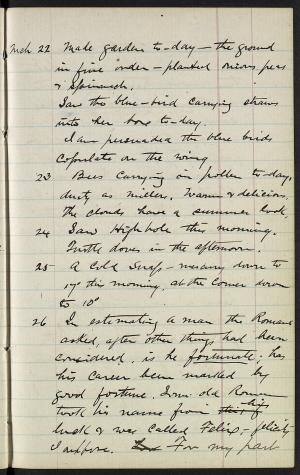 Mch 22 Made garden to-day - the ground
in fine order - planted onions peas
& spinach.
Saw the blue-bird carrying straws
into her box to-day.
I am persuaded the blue birds
copulate on the wing
23 Bees carrying in pollen to-day,
dusty as millers. Warm & delicious.
The clouds have a summer look.
24 Saw Highhole this morning.
Turtle doves in the afternoon.
25 A Cold Snap - mercury down to
17° this morning, at the Corner down
to 10°
26 In estimating a man the Romans
asked, after other things had been
considered, is he fortunate; has
his career been marked by
good fortune. Some old Roman
took his name from his
luck & was called Felix - felicity
I suppose. For my part